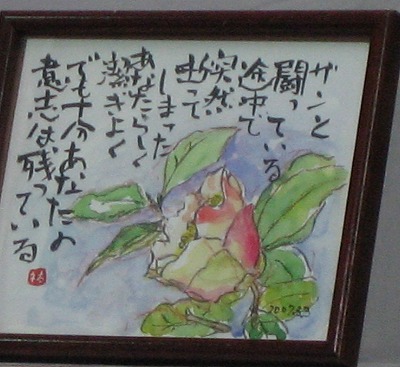 ガンと
闘っている
途中で
突然
逝って
しまった
あなたらしく
潔きよく
でも十分あなたの
意志は残っている